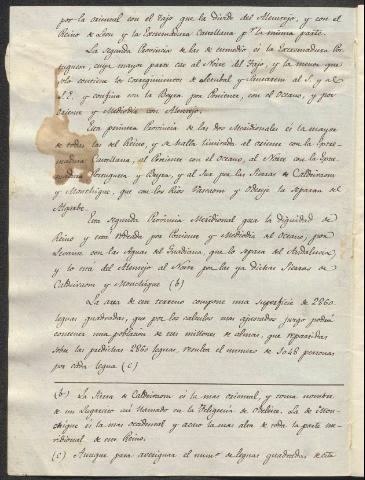 por la oriental con el Tajo que la divide del Alentejo, y con el
Reino de Leon y la Extremadura Castellana p.r la misma parte.
La segunda Provincia de las de enmedio es la Extremadura Por-
tuguesa, cuya mayor parte cae al Norte del Tajo, y la menor que
solo contiene los Corregimientos de Setubal y Santarem al S. y al
E. y confina con la Beyra, por Poniente, con el Oceano, y por
Oriente y Mediodia con Alentejo.
Esta primera Provincia de las dos Meridionales es la mayor
de todas las del Reino, y se halla limitada al oriente con la Extre-
madura Castellana, al Poniente con el Oceano, al Norte con la Extre-
madura Portuguesa y Beyra, y al Sur por las Sierras de Caldeiraom
y Monchique, que con los Rios Vascaom y Odesege la separan del
Algarbe.
Esta segunda Provincia Meridional goza la dignidad de
Reino y está rodeada por Poniente y Mediodia del Oceano, por
Levante con las Aguas del Guadiana, que lo separa del Andalucia,
y lo está del Alentejo al Norte por las ya dichas Sierras de
Caldeiraom y Monchique (b)
La area de este terreno compone una superficie de 2860
leguas quadradas, que por los calculos mas ajustados juzgo podrá
contener una poblacion de tres millones de almas, que repartidas
sobre las predichas 2860 leguas, resulta el numero de 1048 personas
por cada legua (c)
(b) La Sierra de Caldeiraom es la mas oriental, y toma nombre
de un Lugarcito asi llamado en la Feligresia de . La de Mon-
chique es la mas occidental y acaso la mas alta de toda la parte me-
ridional de este Reino.
(c) Aunque para averiguar el num.o de leguas quadradas de esta